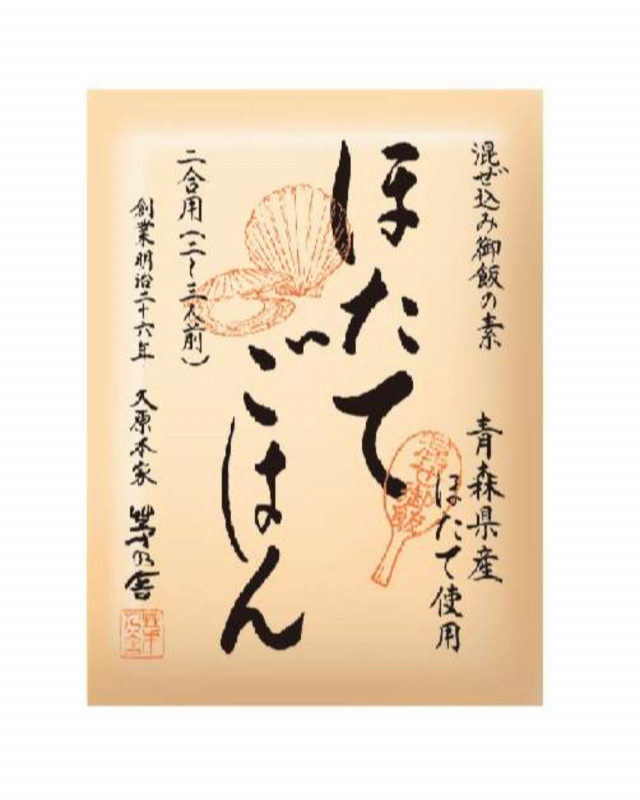 混ぜ込み御飯の素
青森県産
ほたて使用
ほたて
ごはん
混ぜ御飯
二合用(二~三人前)
創業明治二十六年 久原本家 茅乃舎